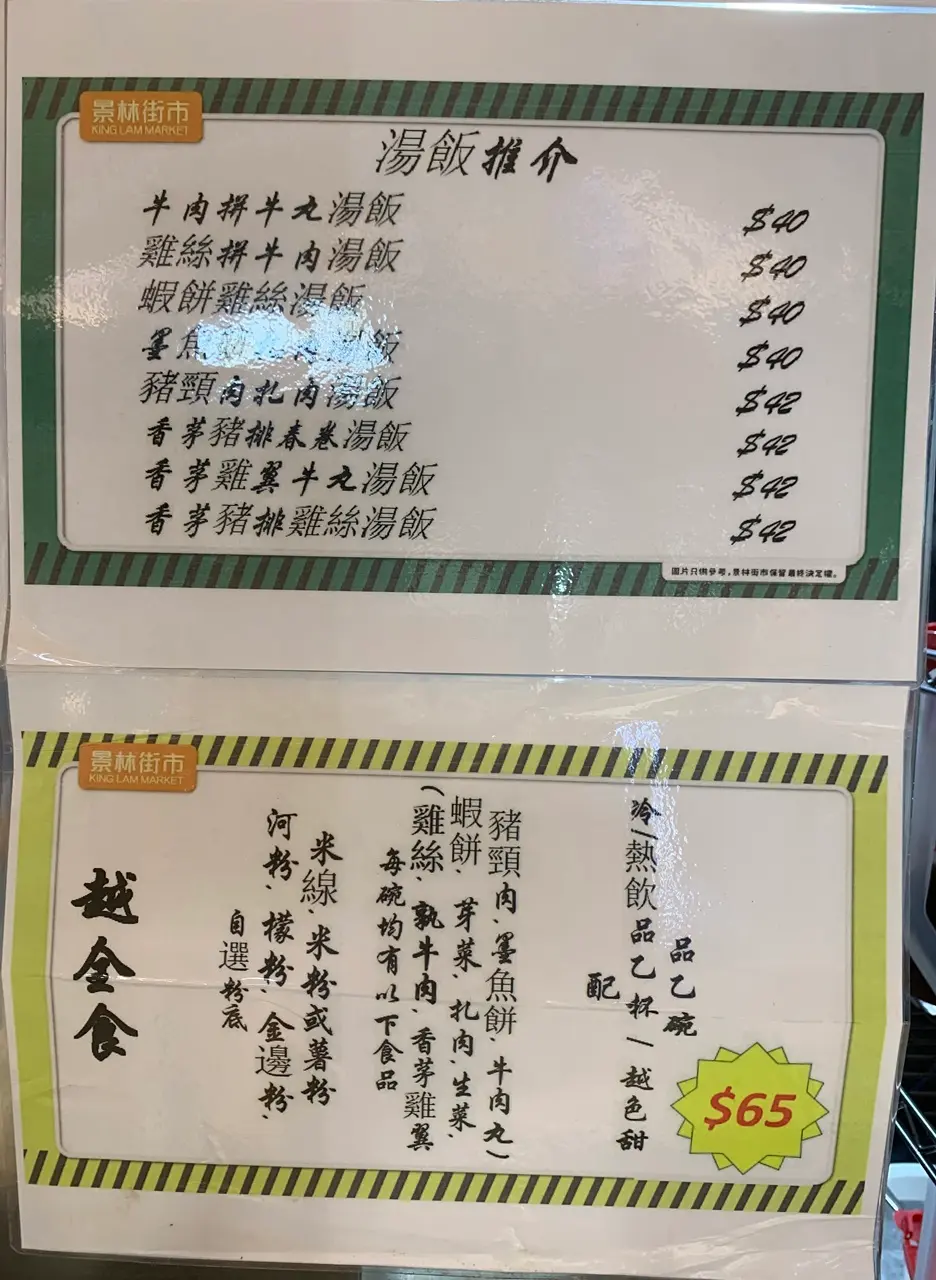 景林街市
KING LAM MARKET
湯飯推介
牛肉拼牛丸湯飯 $40
雞絲拼牛肉湯飯 $40
蝦餅雞絲湯飯 $40
墨魚湯飯 $40
豬頸肉扎肉湯飯 $42
香茅豬排春卷湯飯 $42
香茅雞翼牛丸湯飯 $42
香茅豬排雞絲湯飯 $42
圖片只供參考，景林街市保留最終決定權。
景林街市
KING LAM MARKET
越全食
自選粉底
河粉、檬粉、金邊粉、
米線、米粉或薯粉
每碗均有以下食品
(雞絲、孰牛肉、香茅雞翼
蝦餅、芽菜、扎肉、生菜、
豬頸肉、墨魚餅、牛肉丸)
配
冷/熱飲品乙杯一越色甜
品乙碗
$65